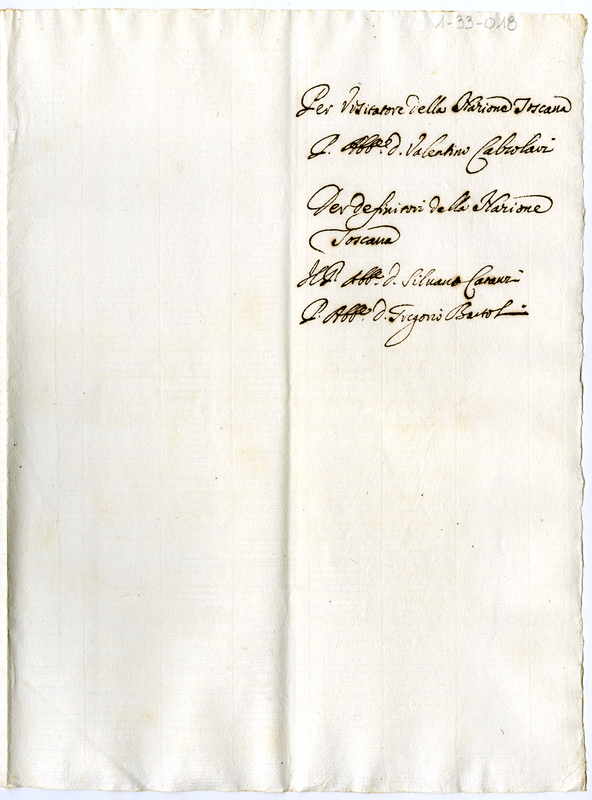 1-33-018
Per Visitatore della Nazione Toscana
P. Abb.e d. Valentino
Per definitori della Nazione
Toscana
Il P. Abb.e d. Silvano
P. Abb.e d.